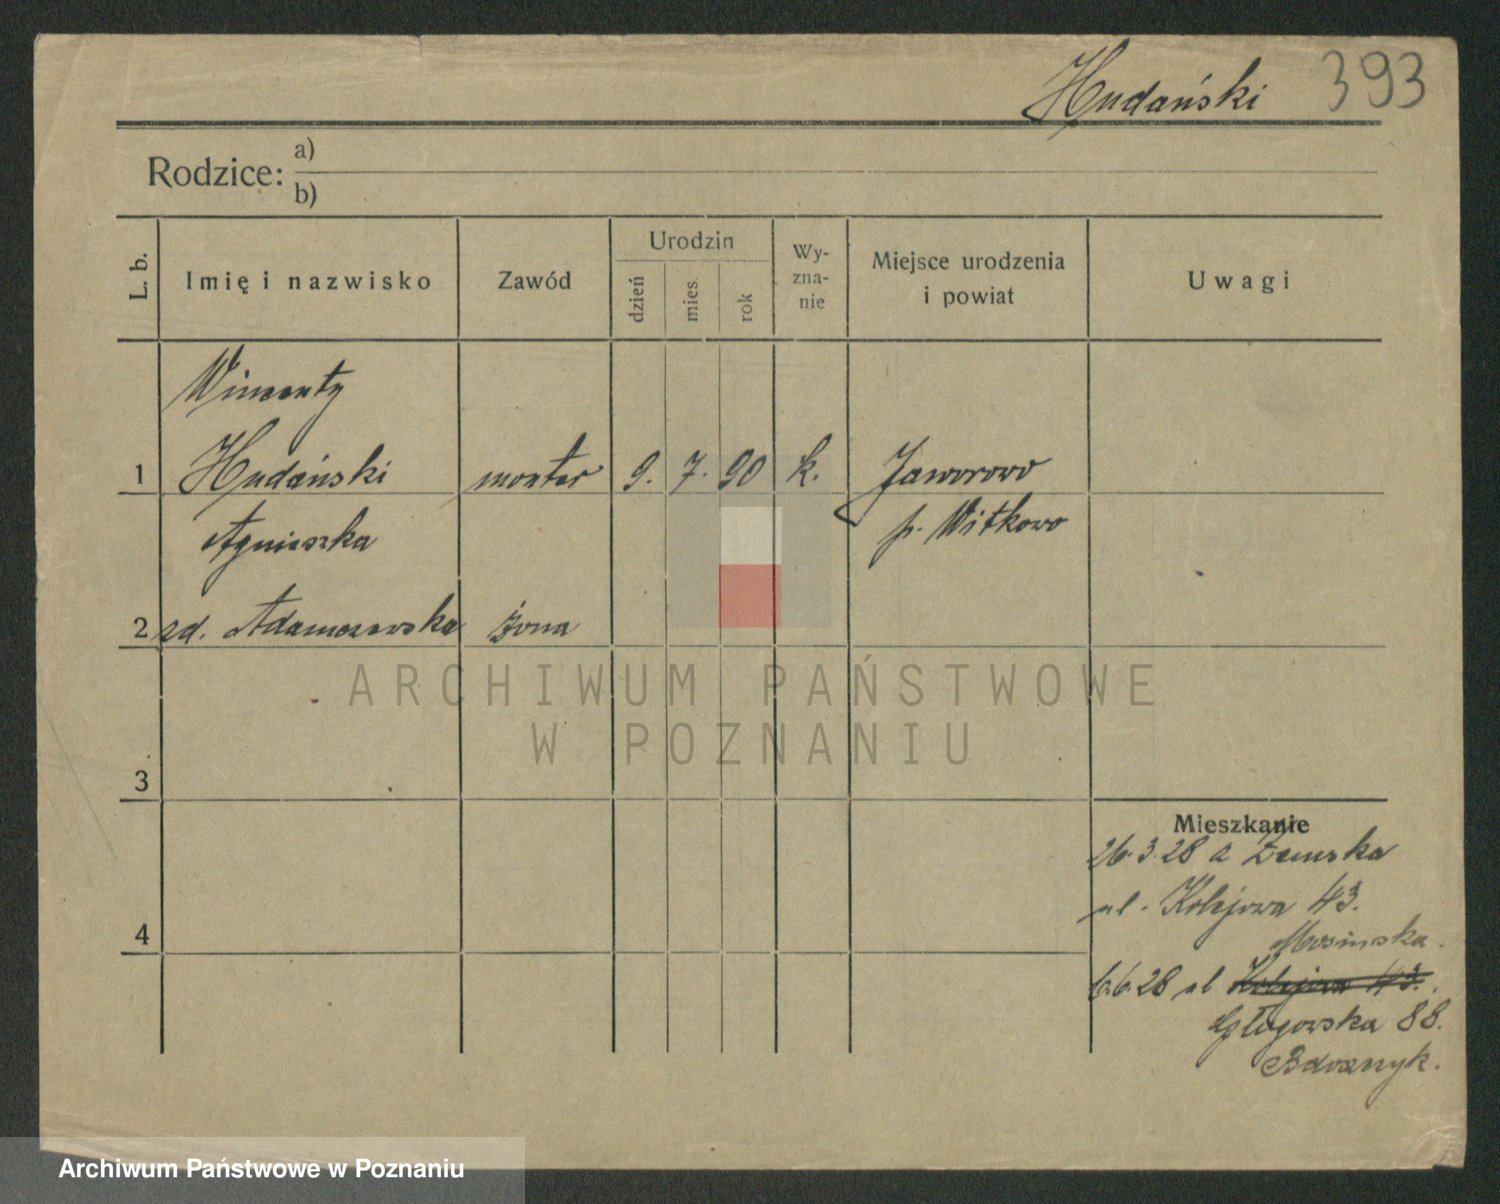 Hudański 393
Rodzice: a)
b)
L. b. Imię i nazwisko Zawód Urodzin dzień mies. rok Wy-
zna-
nie Miejsce urodzenia
i powiat Uwagi
Wincenty
1 Hudański monter 9. 7. 90 k. Jaworowo
p. Witkowo
Agnieszka
2 zd. Adamczewska żona
3
4
Mieszkanie
26.3.28 a
ul. Kolejowa 43.
6.6.28 ul Kolejowa 43.
Głogowska 88.
ARCHIWUM PAŃSTWOWE
W POZNANIU
Archiwum Państwowe w Poznaniu